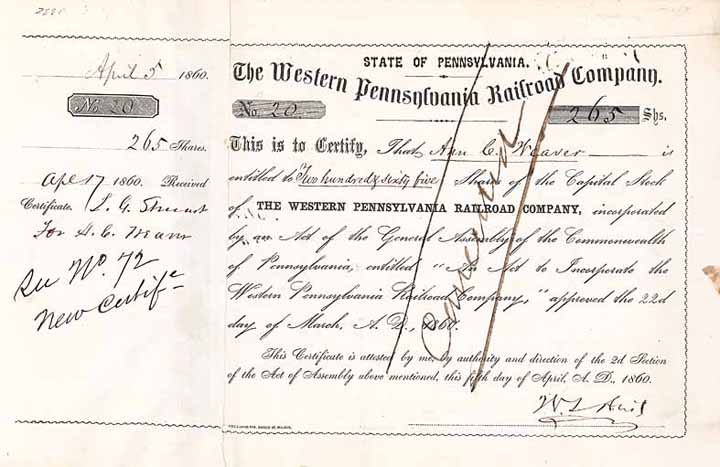 April 5 1860.
No 20
265 Shares.
Apl 17 1860. Received
Certificate.
For
See No. 72
New Certif
STATE OF PENNSYLVANIA.
The Western Pennsylvania Railroad Company.
No 20 265 Shs.
This is to Certify, That Ann C. Weaver is
entitled to Two hundred & sixty five Shares of the Capital Stock
of THE WESTERN PENNSYLVANIA RAILROAD COMPANY, incorporated
by an Act of the General Assembly of the Commonwealth
of Pennsylvania, entitled "An Act to Incorporate the
Western Pennsylvania Railroad Company," approved the 22d
day of March, A. D., 1860.
This Certificate is attested by me, by authority and direction of the 2d Section
of the Act of Assembly above mentioned, this fifth day of April, A. D., 1860.
Cancelled